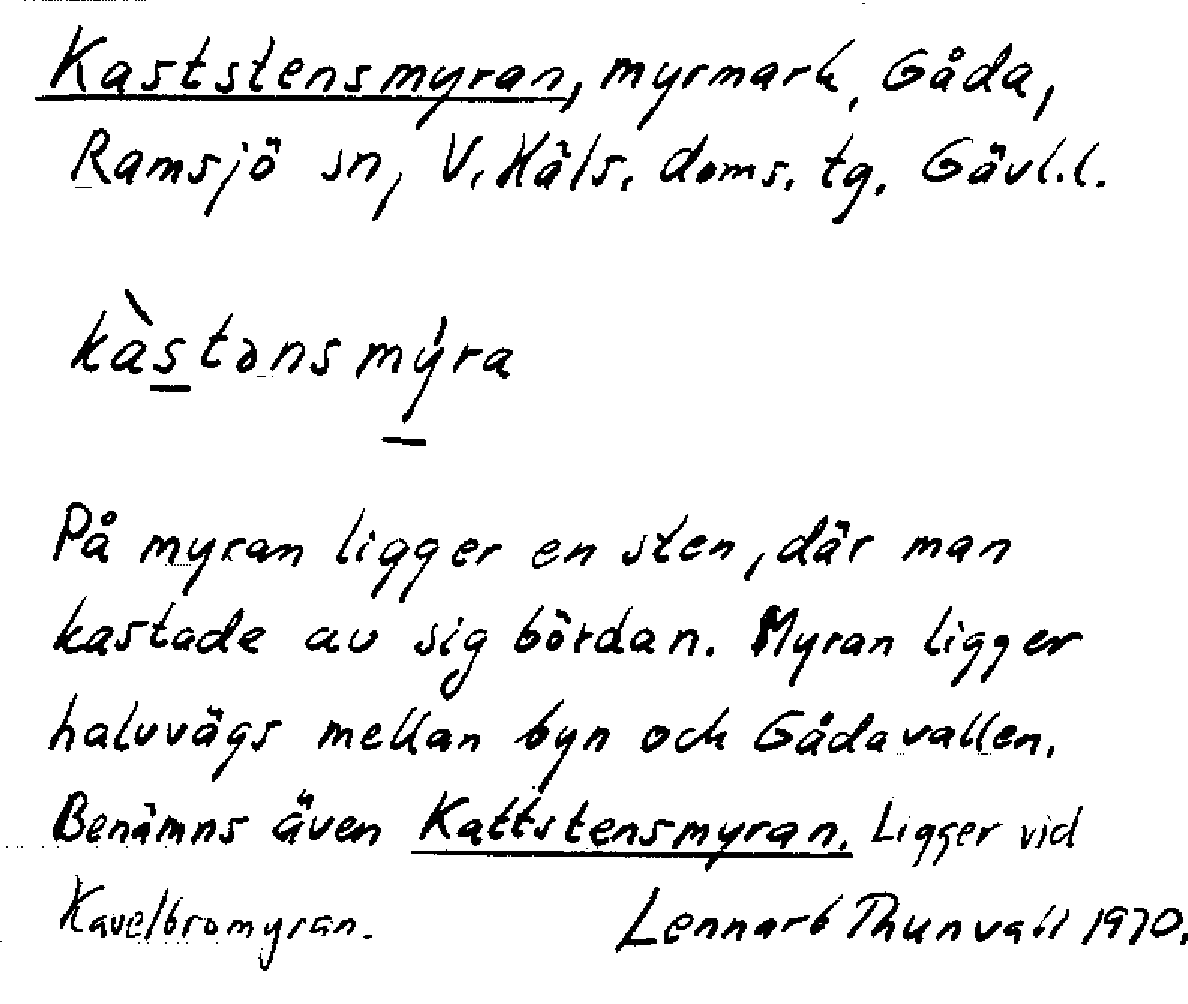 Kaststensmyran, myrmark, Gåda,
Ramsjö sn, V. Häls. doms. tg. Gävl.l.
kàstənsmýra
På myran ligger en sten, där man
kastade av sig bördan. Myran ligger
halvvägs mellan byn och Gådavallen.
Benämns även Kattstensmyran. Ligger vid
Kavelbromyran. Lennart Thunvall 1970.